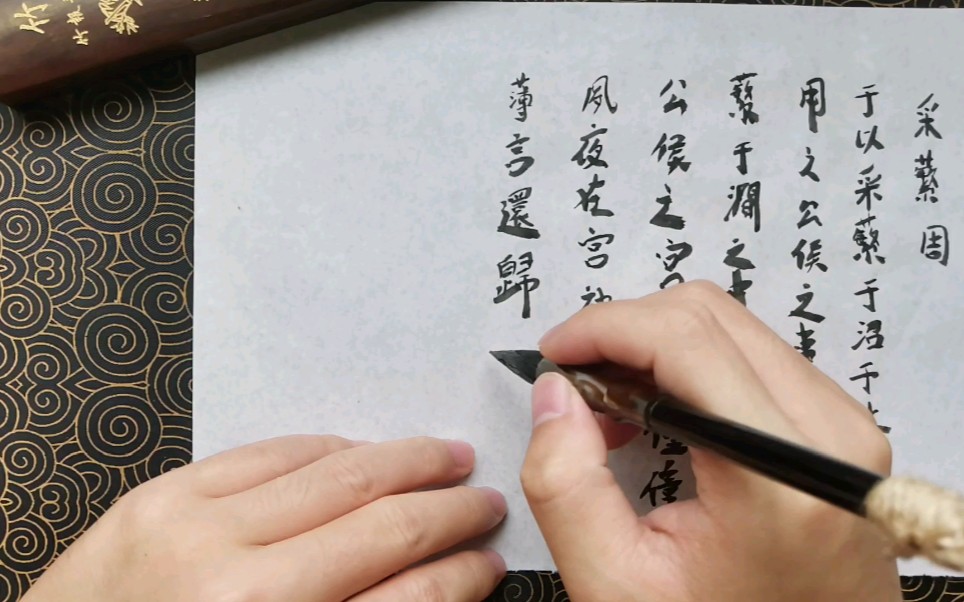 采蘩周
于以采蘩于沼于
用之公侯之事
蘩于澗之中
公侯之宫僮僮
夙夜在宫
薄言還歸